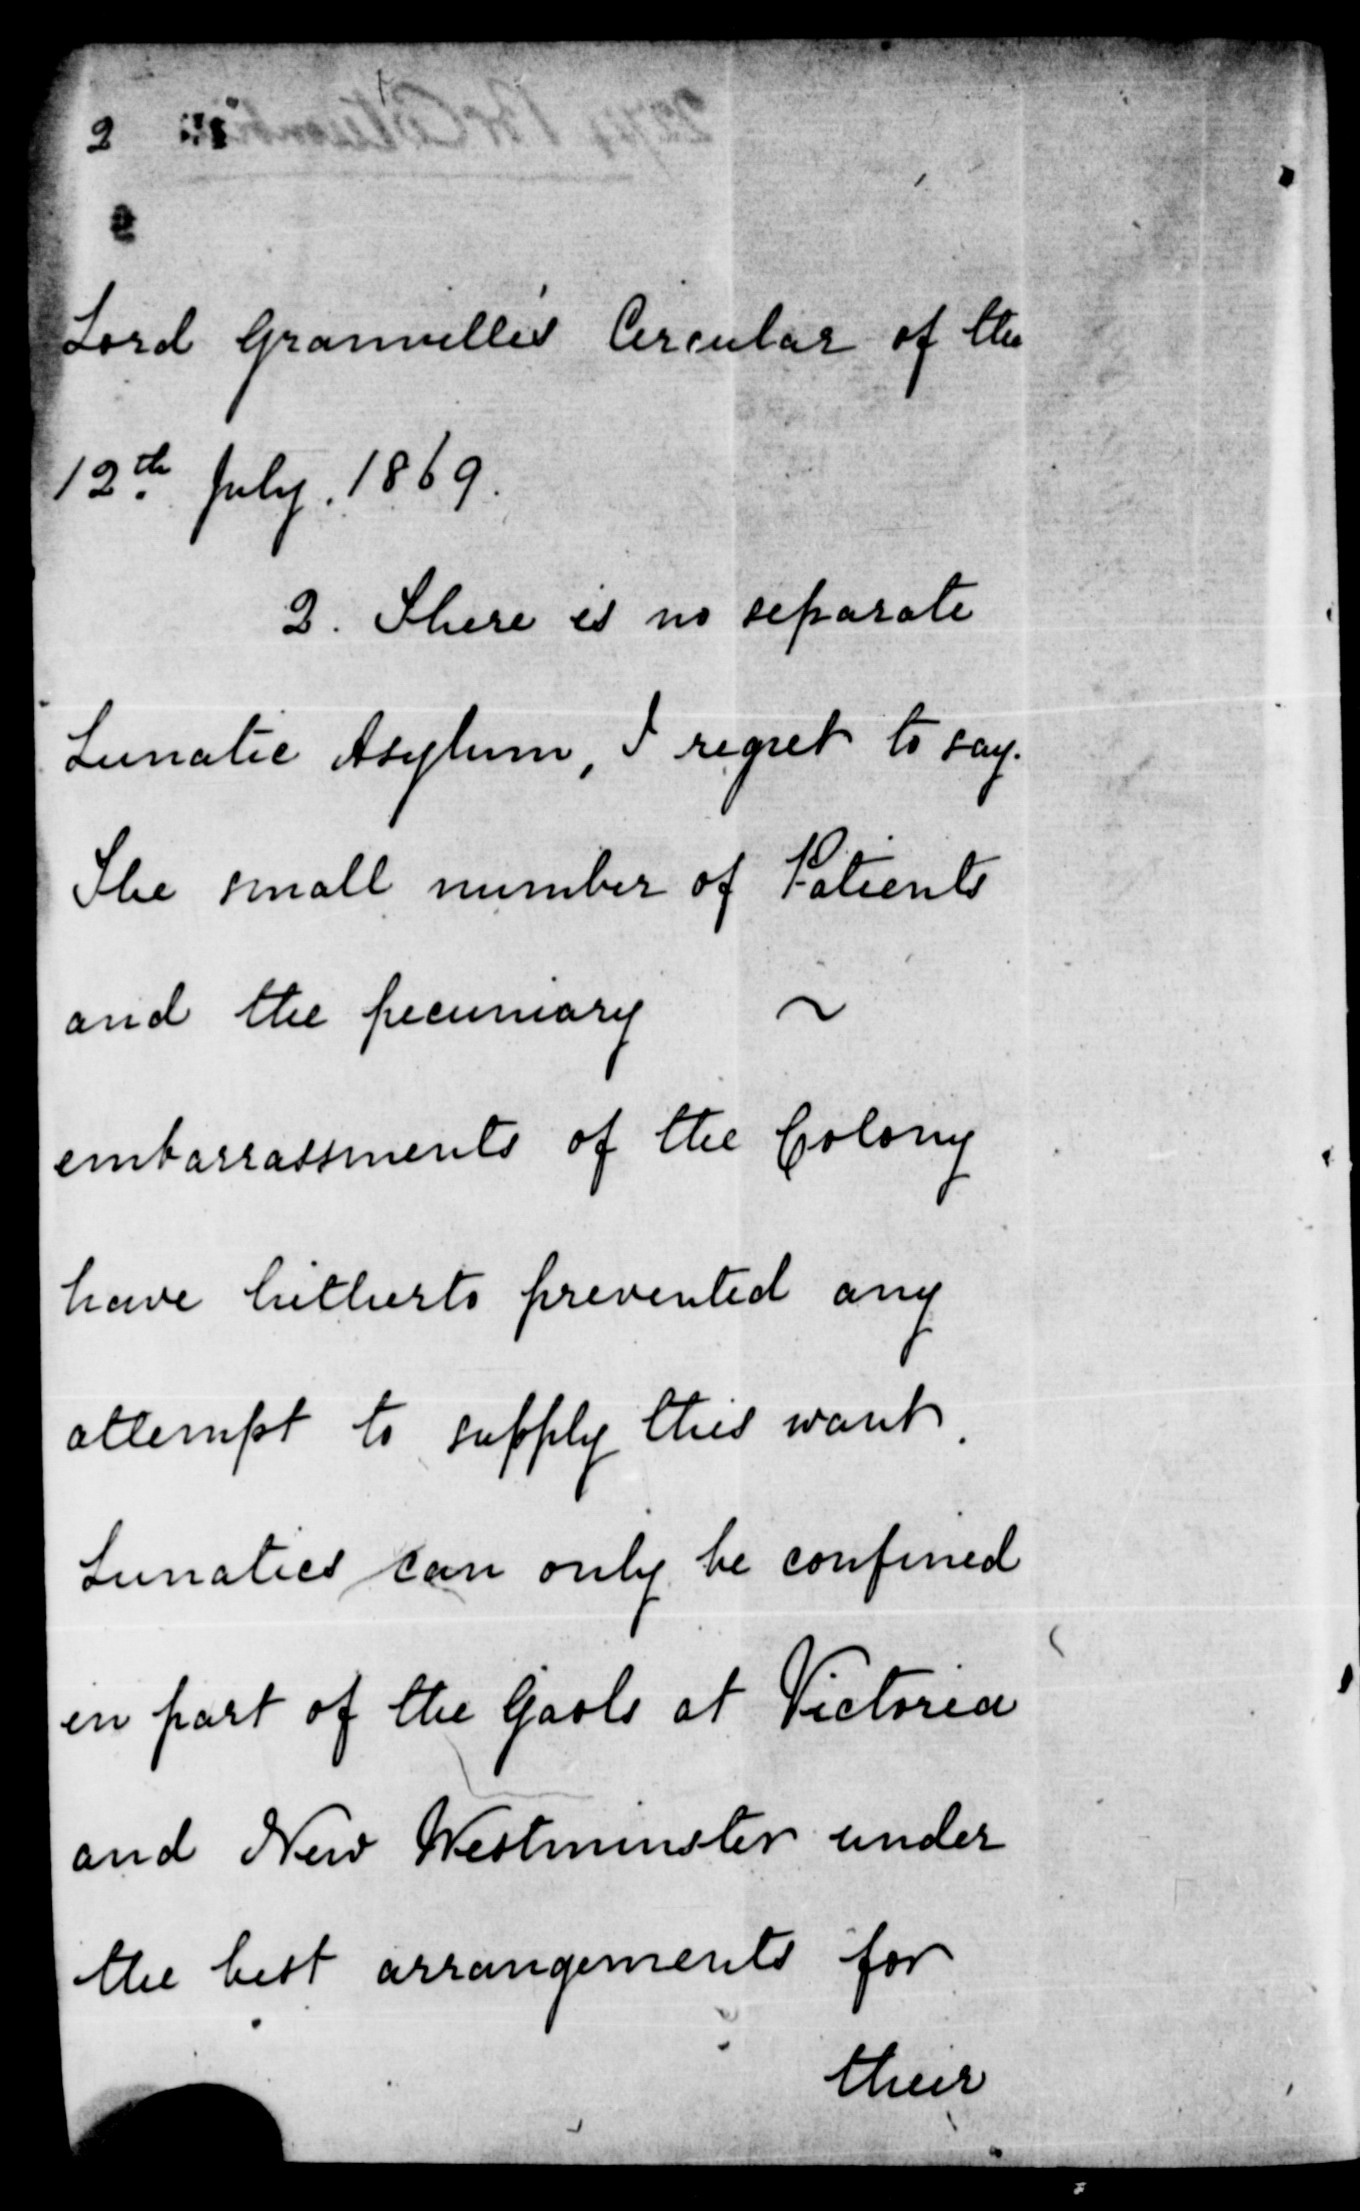 2
Lord Granville's Circular of the
12th July. 1869.
2. There is no separate
Lunatic Asylum, I regret to say.
The small number of Patients
and the pecuniary ~
embarrassments of the Colony
have hitherto prevented any
attempt to supply this want.
Lunatics can only be confined
in part of the Gaols at Victoria
and New Westminster under
the best arrangements for
their